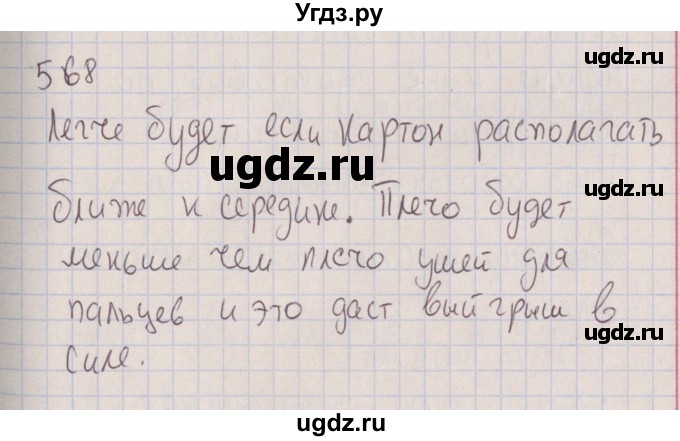 Угдз.ру
ugdz.ru
568
ugdz.ru
Легче будет если картон располагать
ugdz.ru
ugdz.ru
ближе к середине. Плечо будет
меньше чем плечо ушей для
ugdz.ru
пальцев и это даст выйгрыш в
силе.
ugdz.ru